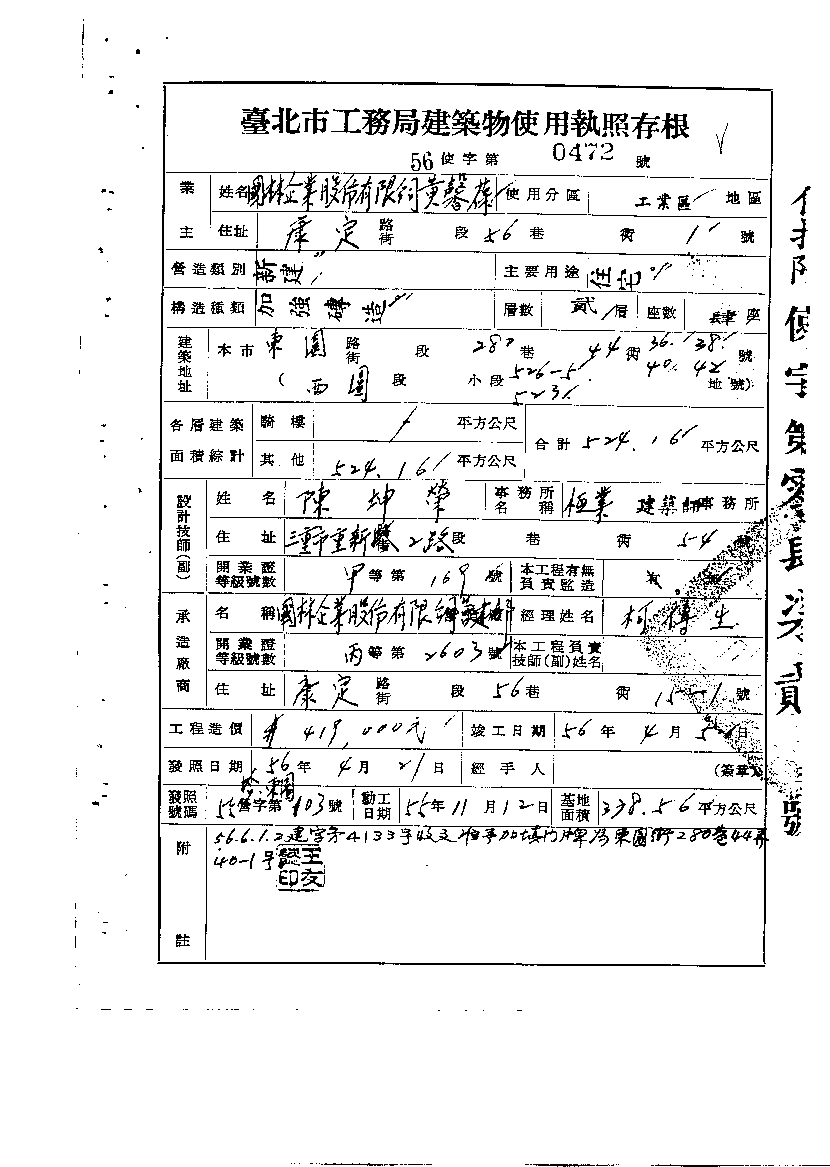 臺北市工務局建築物使用執照存根
56 使字第 0472 號
業主 姓名 國林企業股份有限公司黃馨葆 使用分區 工業區 地區
住址 康定 路街 段 56 巷 街 1 號
營造類別 新建 主要用途 住宅
構造種類 加強磚造 層數 貳 層 座數 肆 座
建築地址 本市 東園 路街 段 280 巷 44 街 36. 38. 40. 42 號
( 西園 段 小段 526-5 523 地號)
各層建築面積綜計 騎樓 / 平方公尺 合計 524.16 平方公尺
其他 524.16 平方公尺
設計技師(副) 姓名 陳坤榮 事務所名稱 極業 建築師事務所
住址 三重市重新路 2 段 巷 街 54 號
開業證等級號數 甲 等第 169 號 本工程有無負責監造
承造廠商 名稱 國林企業股份有限公司 經理姓名 柯 生
開業證等級號數 丙 等第 2603 號 本工程負責技師(副)姓名
住址 康定 路街 段 56 巷 街 15-1 號
工程造價 419,000元 竣工日期 56 年 4 月 日
發照日期 56 年 4 月 21 日 經手人 (簽章)
發照號碼 55 營字第 103 號 動工日期 55 年 11 月 12 日 基地面積 338.56 平方公尺
附註 56.6.1.2建字第4133字收文 加填門牌為東園街280巷44弄
40-1號